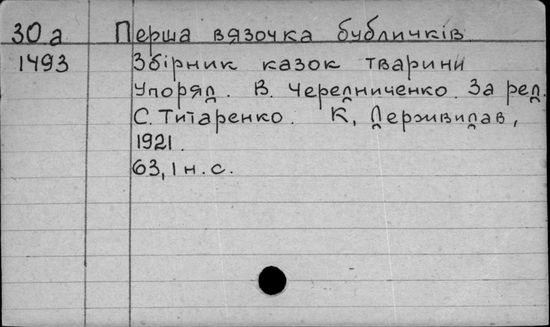 30а Перша вязочка бубличків
1493 Збірник казок тварини
Упоряд. В. Чередниченко. За ред.
С. Титаренко. К, Держвидав,
1921.
63, 1 н. с.